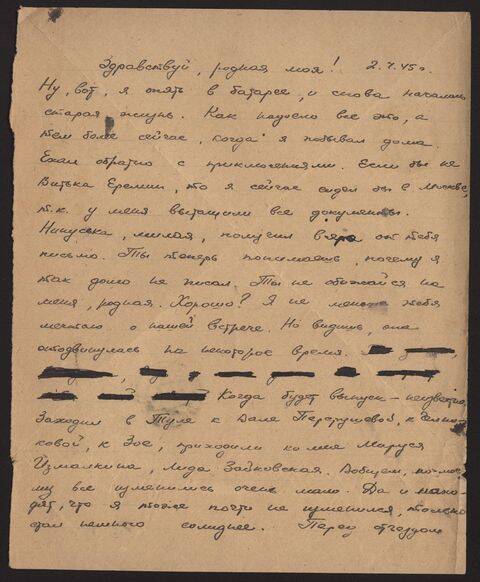 Здравствуй, родная моя! 2.7.45г.
Ну, вот, я опять в батарее, и снова началась
старая жизнь. Как надоело все это, а
тем более сейчас, когда я побывал дома.
Ехал обратно с приключениями. Если бы не
Витька Еремин, то я сейчас сидел бы в Москве,
т.к. у меня вытащили все документы.
Нинуська, милая, получил вчера от тебя
письмо. Ты теперь понимаешь, почему я
так долго не писал. Ты не обижайся на
меня, родная. Хорошо? Я не меньше тебя
мечтаю о нашей встрече. Но видишь, она
отодвинулась на некоторое время.
Когда будет выпуск – неизвестно.
Заходил в Туле к Вале Перетушевой, к
ковой, к Зое, приходили ко мне Маруся
Измалкина, Лида Зайковская. Вобщем, по-мое-
му все изменились очень мало. Да и нахо-
дят, что я тоже почти не изменился, только
стал немного солиднее. Перед отъездом